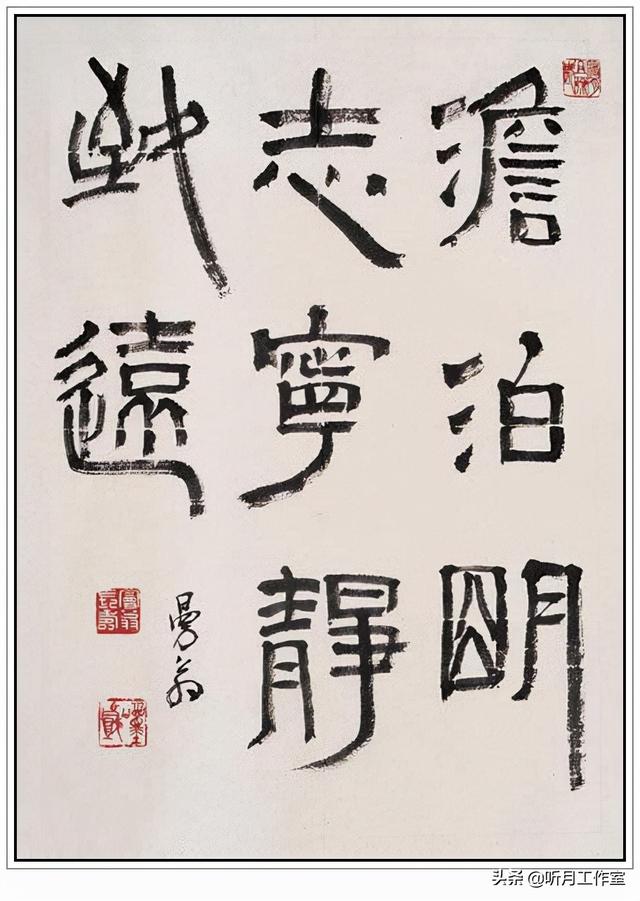 澹泊明
志寧靜
致遠
曼翁
头条 @听月工作室